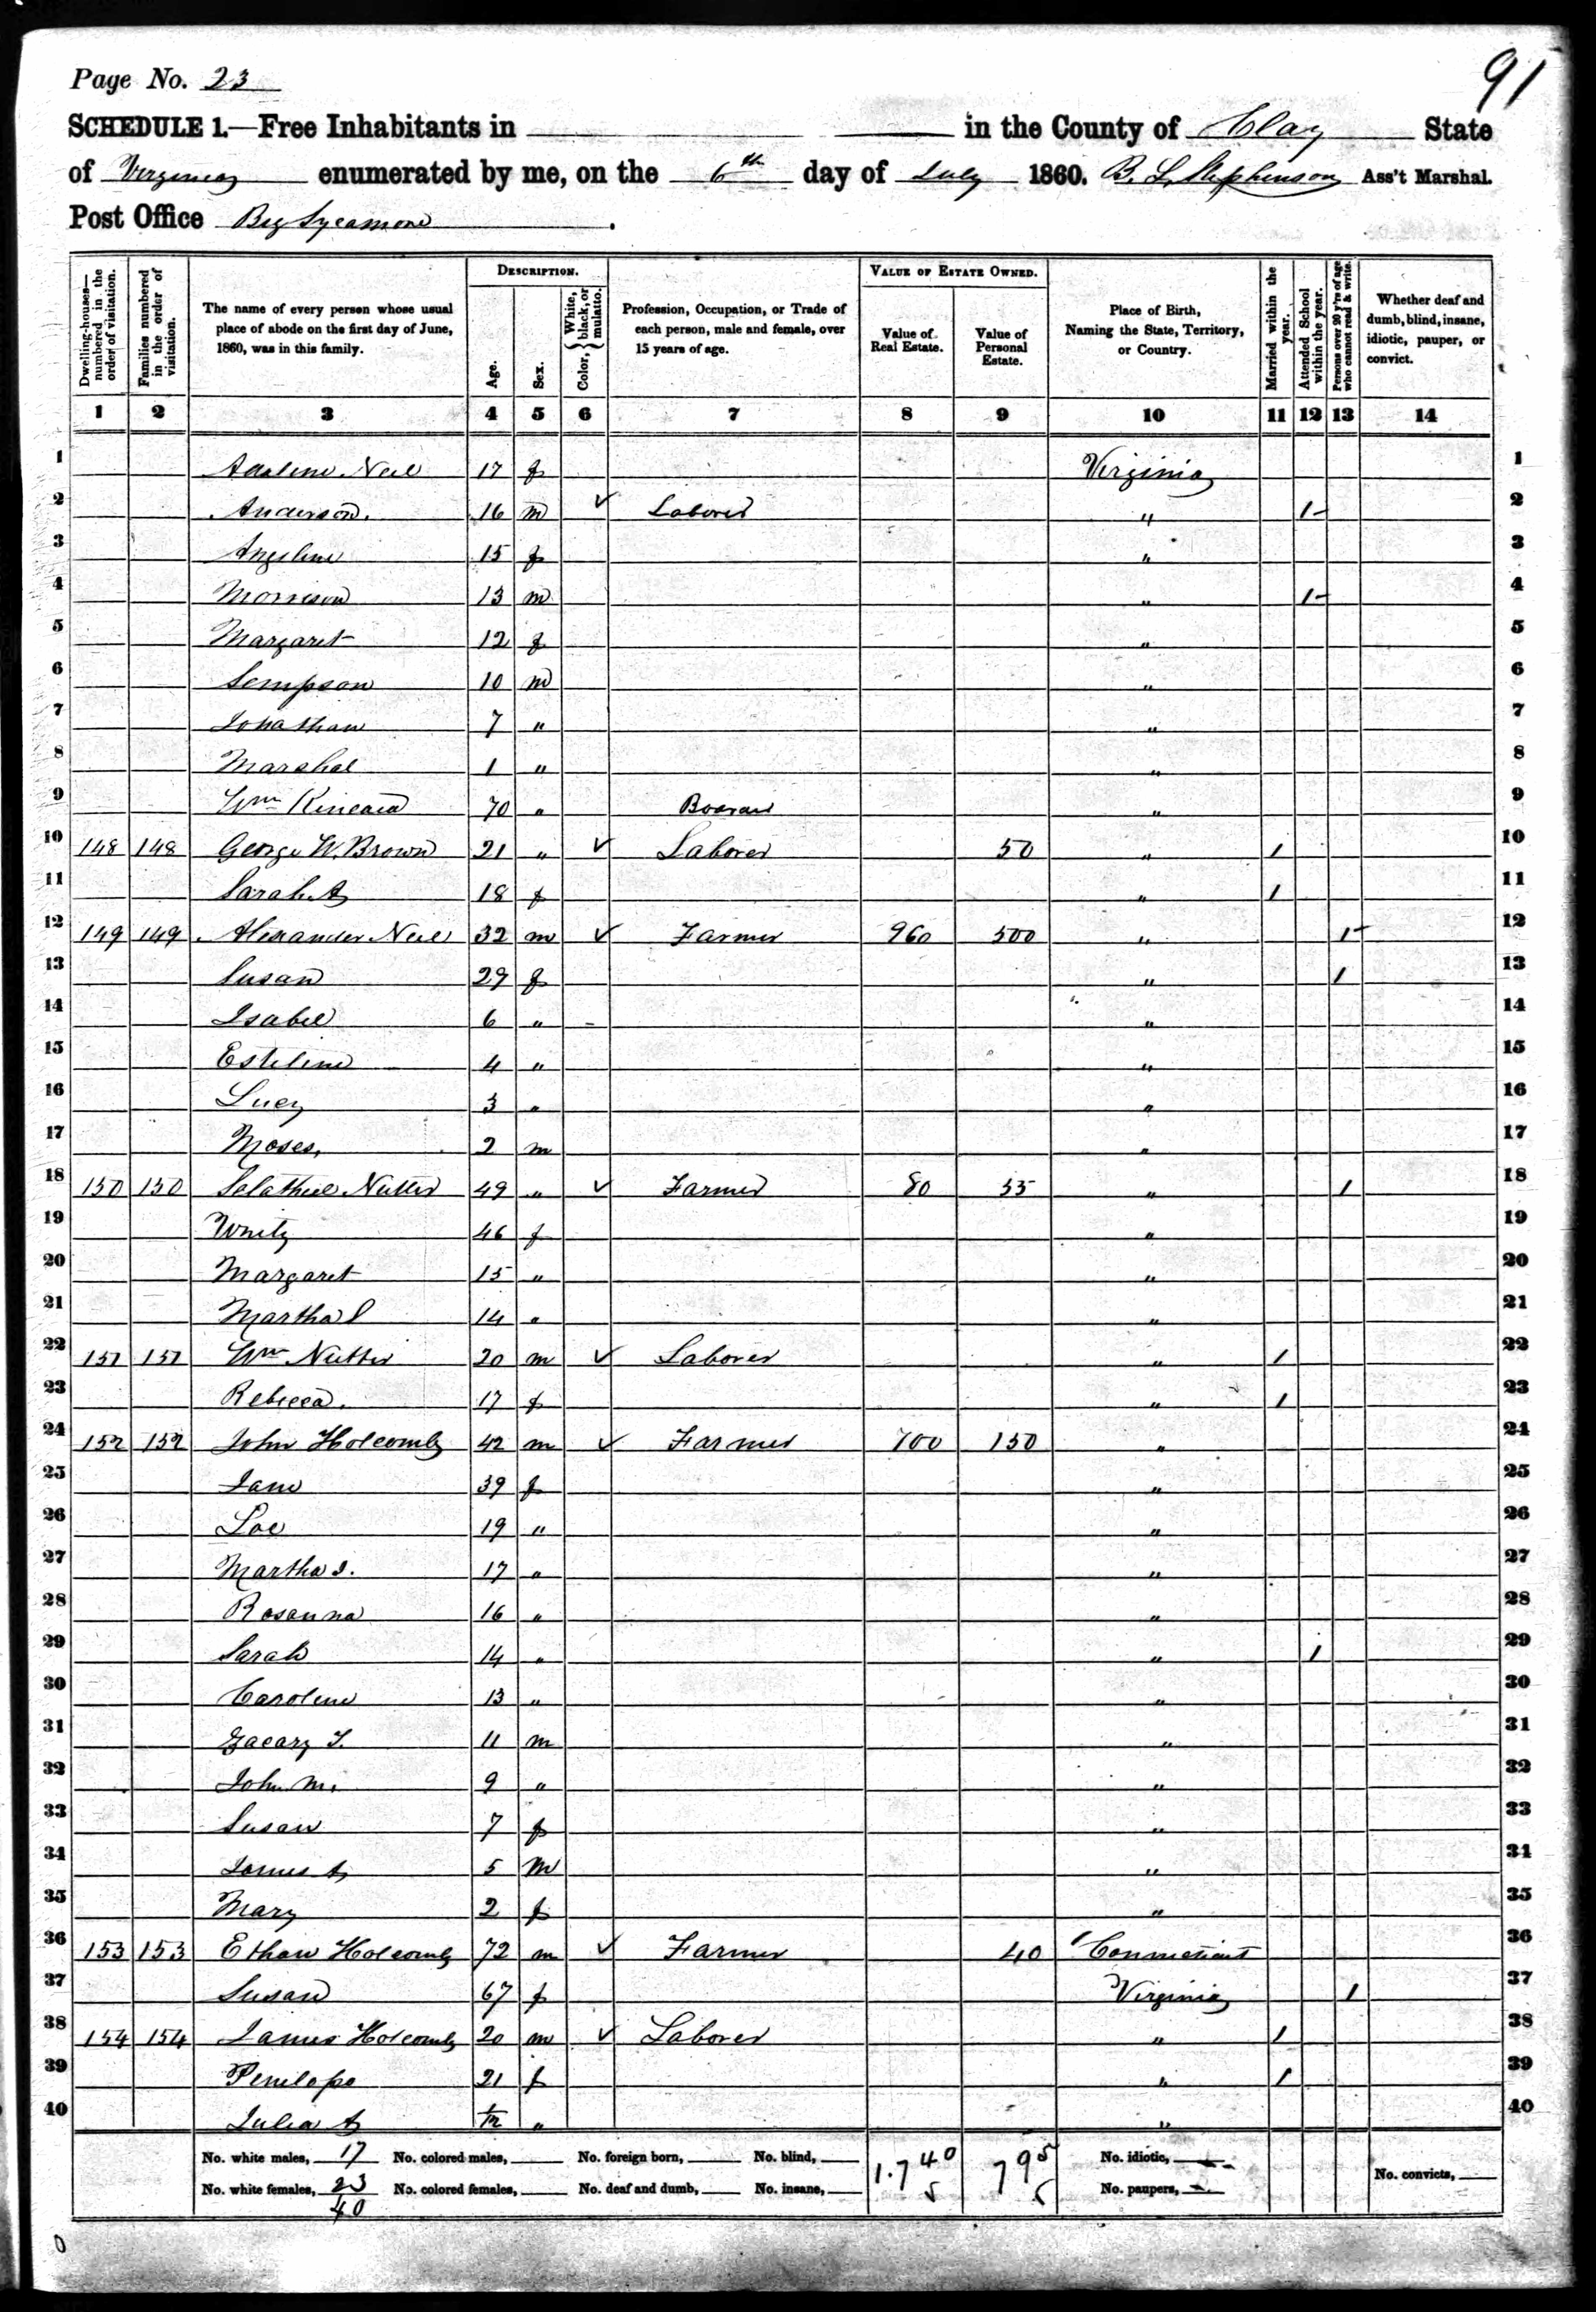 91
Page No. 23
SCHEDULE 1.—Free Inhabitants in in the County of Clay State
of Virginia enumerated by me, on the 6th day of July 1860. B. L. Stephenson Ass't Marshal.
Post Office Big Sycamore.
Dwelling-houses—numbered in the order of visitation.
Families numbered in the order of visitation.
The name of every person whose usual place of abode on the first day of June, 1860, was in this family.
DESCRIPTION.
Age.
Sex.
Color, {White, black, or mulatto.
Profession, Occupation, or Trade of each person, male and female, over 15 years of age.
VALUE OF ESTATE OWNED.
Value of Real Estate.
Value of Personal Estate.
Place of Birth, Naming the State, Territory, or Country.
Married within the year.
Attended School within the year.
Persons over 20 y'rs of age who cannot read & write.
Whether deaf and dumb, blind, insane, idiotic, pauper, or convict.
1 2 3 4 5 6 7 8 9 10 11 12 13 14
1 Adaline Neil 17 f Virginia 1
2 Anderson 16 m ✓ Laborer " 1 2
3 Angeline 15 f " 3
4 Morrison 13 m " 1 4
5 Margaret 12 f " 5
6 Sempson 10 m " 6
7 Jonathan 7 " " 7
8 Marshal 1 " " 8
9 Wm Kincaid 70 " Boarder " 9
10 148 148 George W. Brown 21 " ✓ Laborer 50 " 1 10
11 Sarah A 18 f " 1 11
12 149 149 Alexander Neil 32 m ✓ Farmer 960 500 " 1 12
13 Susan 29 f " 1 13
14 Isabel 6 " " 14
15 Esteline 4 " " 15
16 Lucy 3 " " 16
17 Moses 2 m " 17
18 150 150 Selathiel Nutter 49 " ✓ Farmer 80 55 " 1 18
19 Unity 46 f " 19
20 Margaret 15 " " 20
21 Martha J 14 " " 21
22 151 151 Wm Nutter 20 m ✓ Laborer " 1 22
23 Rebecca 17 f " 1 23
24 152 152 John Holcomb 42 m ✓ Farmer 700 150 " 24
25 Jane 39 f " 25
26 Loe 19 " " 26
27 Martha J. 17 " " 27
28 Rosanna 16 " " 28
29 Sarah 14 " " 1 29
30 Caroline 13 " " 30
31 Zacary T. 11 m " 31
32 John M. 9 " " 32
33 Susan 7 f " 33
34 James A 5 m " 34
35 Mary 2 f " 35
36 153 153 Ethan Holcomb 72 m ✓ Farmer 40 Connecticut 36
37 Susan 67 f Virginia 1 37
38 154 154 James Holcomb 20 m ✓ Laborer " 1 38
39 Penelope 21 f " 1 39
40 Julia A " " 40
No. white males, 17 No. colored males, No. foreign born, No. blind, 1.740 795 No. idiotic,
No. white females, 23 No. colored females, No. deaf and dumb, No. insane, 5 5 No. paupers, No. convicts,
40